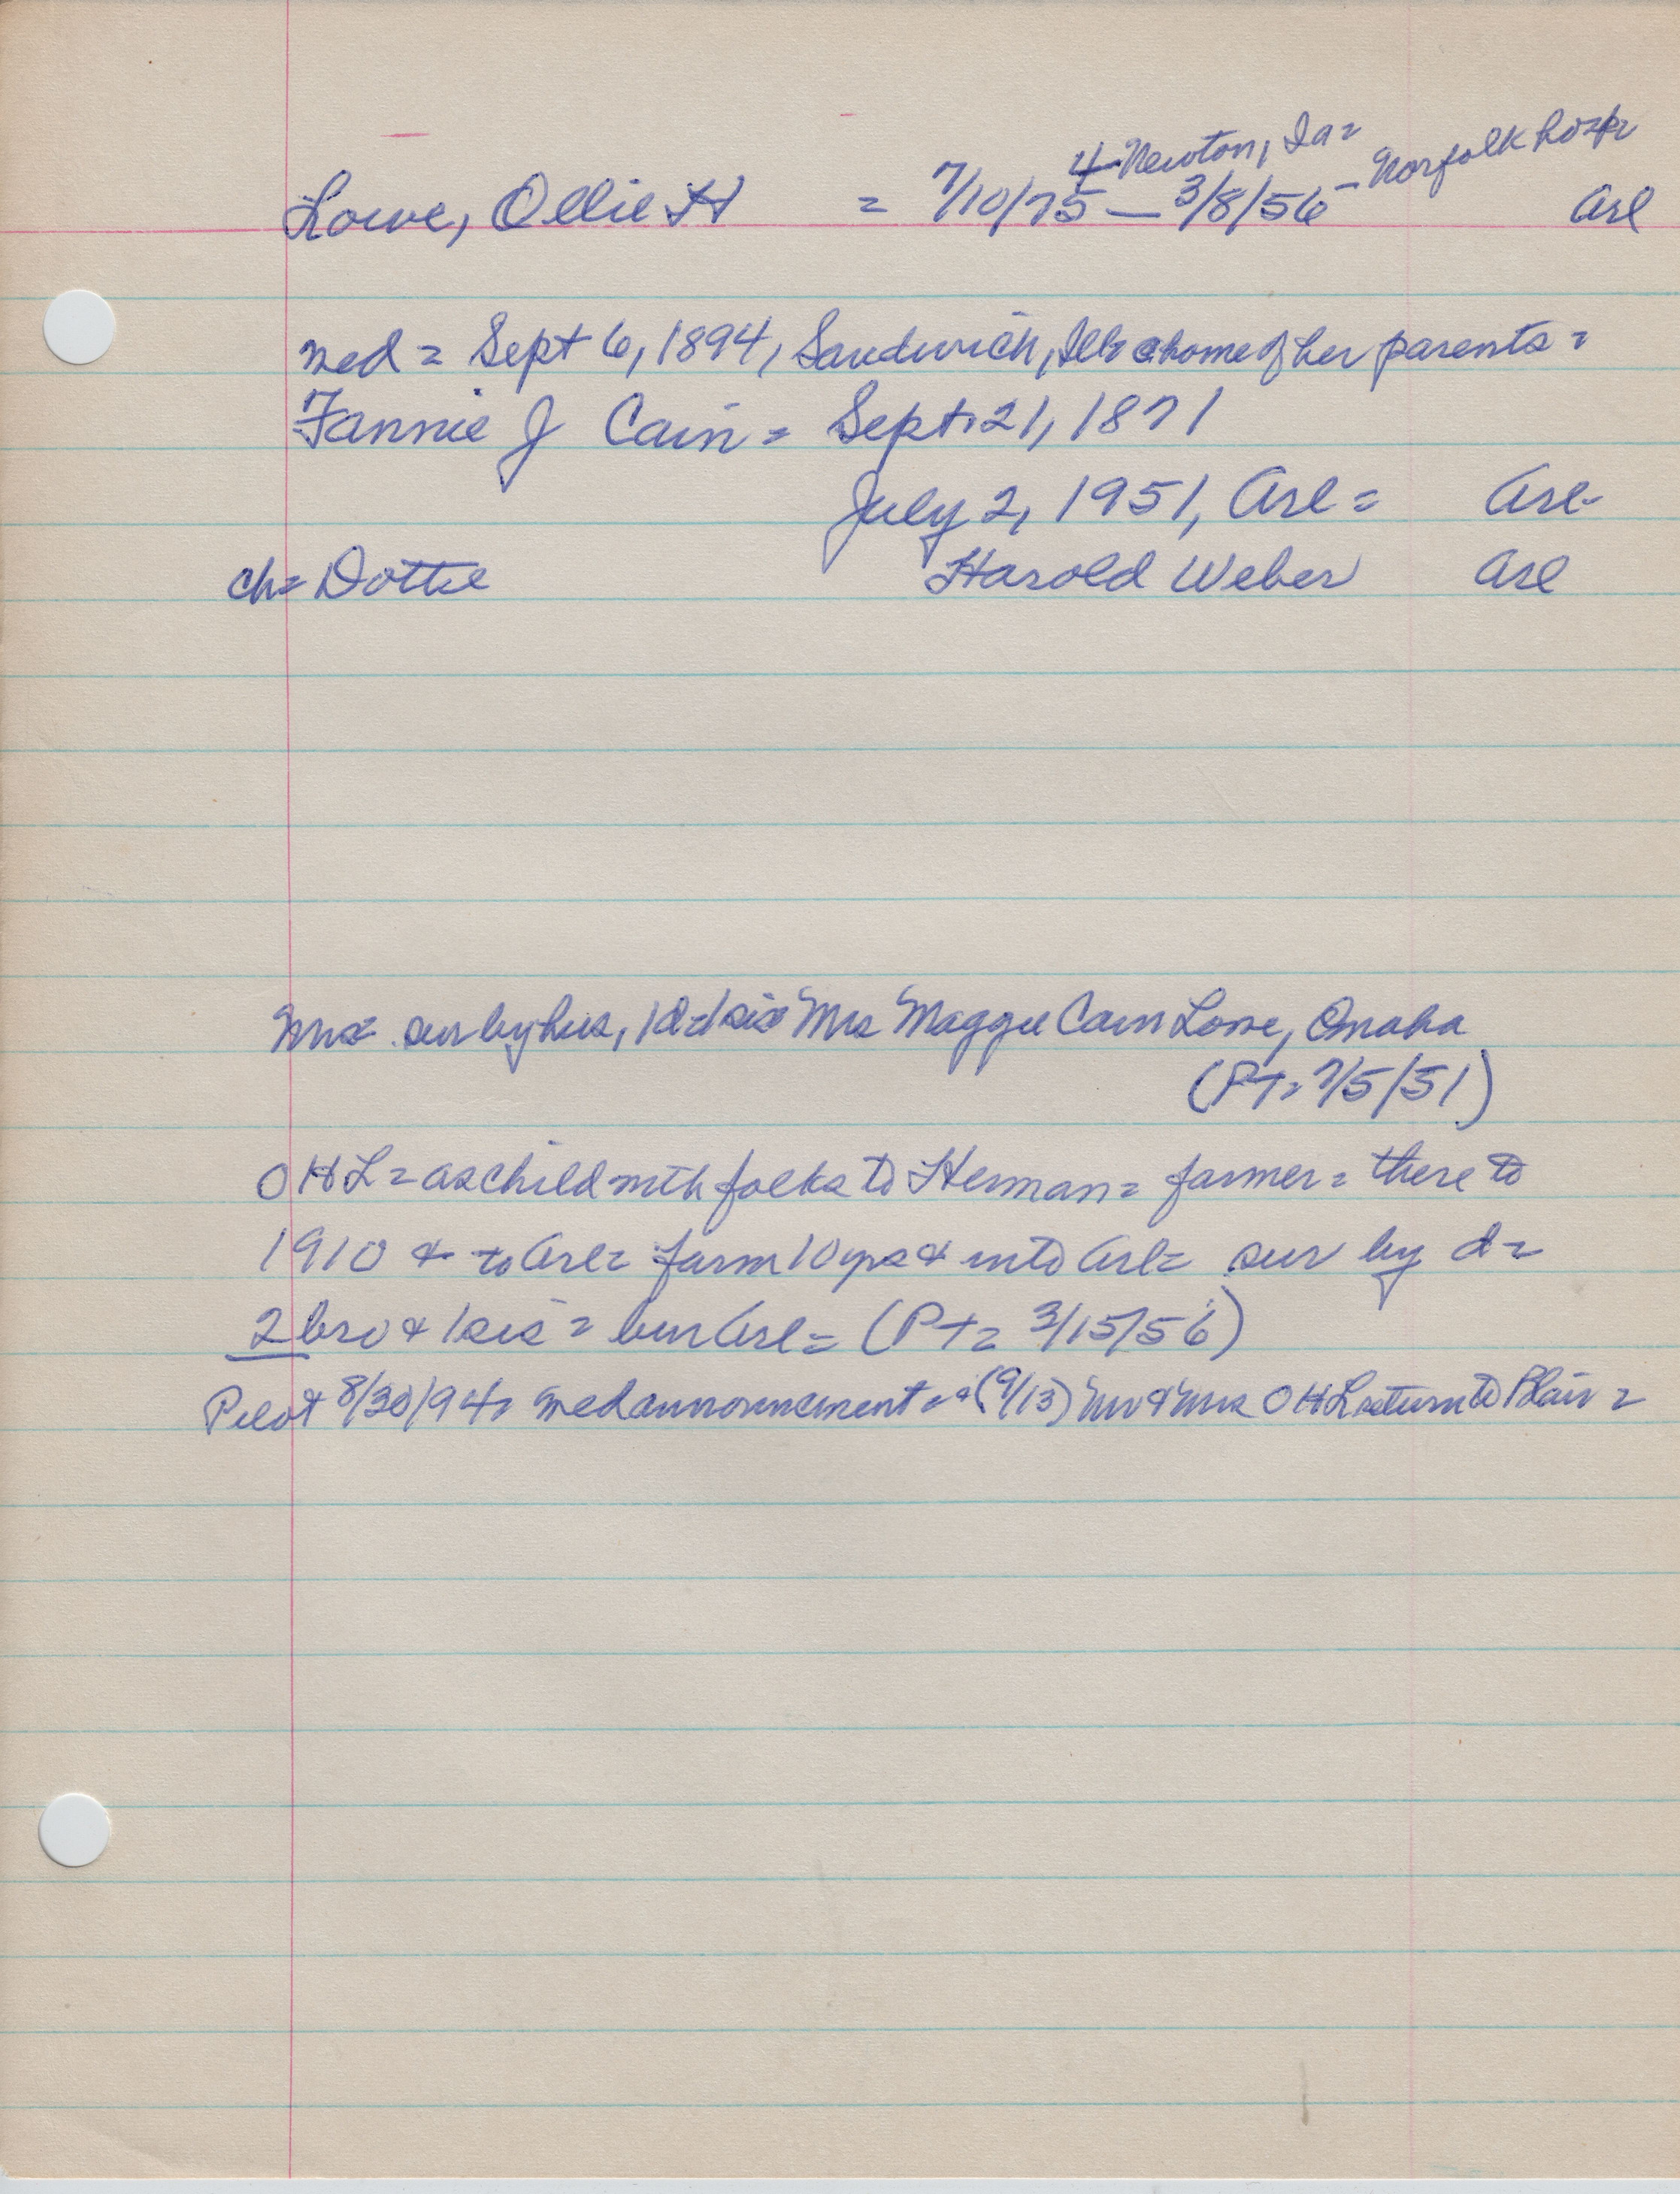 4 - Newton, Ia = - Norfolk hosp
Lowe, Ollie H = 7/10/75 — 3/8/56 Arl
wed = Sept 6, 1894, Sandwich, Ill = @ home of her parents =
Fannie J Cain = Sept. 21, 1871
July 2, 1951, Arl = Arl-
ch = Dottie Harold Weber Arl
Mrs = sur by hus, 1d = 1 sis = Mrs Maggie Cain Lowe, Omaha
(PT = 7/5/51)
OHL = as child with folks to Herman = farmer = there to
1910 & to Arl = farm 10 yrs & into Arl = sur by d =
2 bro & 1 sis = bur Arl = (PT = 3/15/56)
Pilot 8/30/94 = wed announcement = (9/13) Mr & Mrs OHL return to Blair =